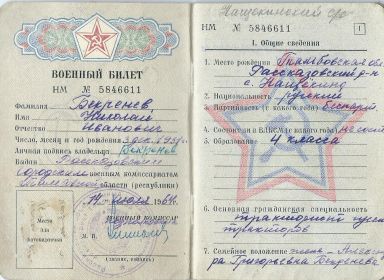 ВОЕННЫЙ БИЛЕТ
НМ № 5846611
Фамилия Бекренев
Имя Николай
Отчество Иванович
Число, месяц и год рождения
Личная подпись владельца Бекренев
Выдан Рассказовским
городским военным комиссариатом
Тамбовской области (республики)
14 июля 1964 г.
Военный комиссар
М. П.
Место
для
фотокарточки
Нащекинский с/с
НМ № 5846611
1
I. Общие сведения
1. Место рождения Тамбовская обл.
Рассказовский р-н
с. Нащекино
2. Национальность русский
3. Партийность (с какого года) беспарт.
4. Состоял ли в ВЛКСМ (с какого года) не сост.
5. Образование 4 класса
6. Основная гражданская специальность
тракторист
тракторов
7. Семейное положение жена -
Григорьевна Бекренева